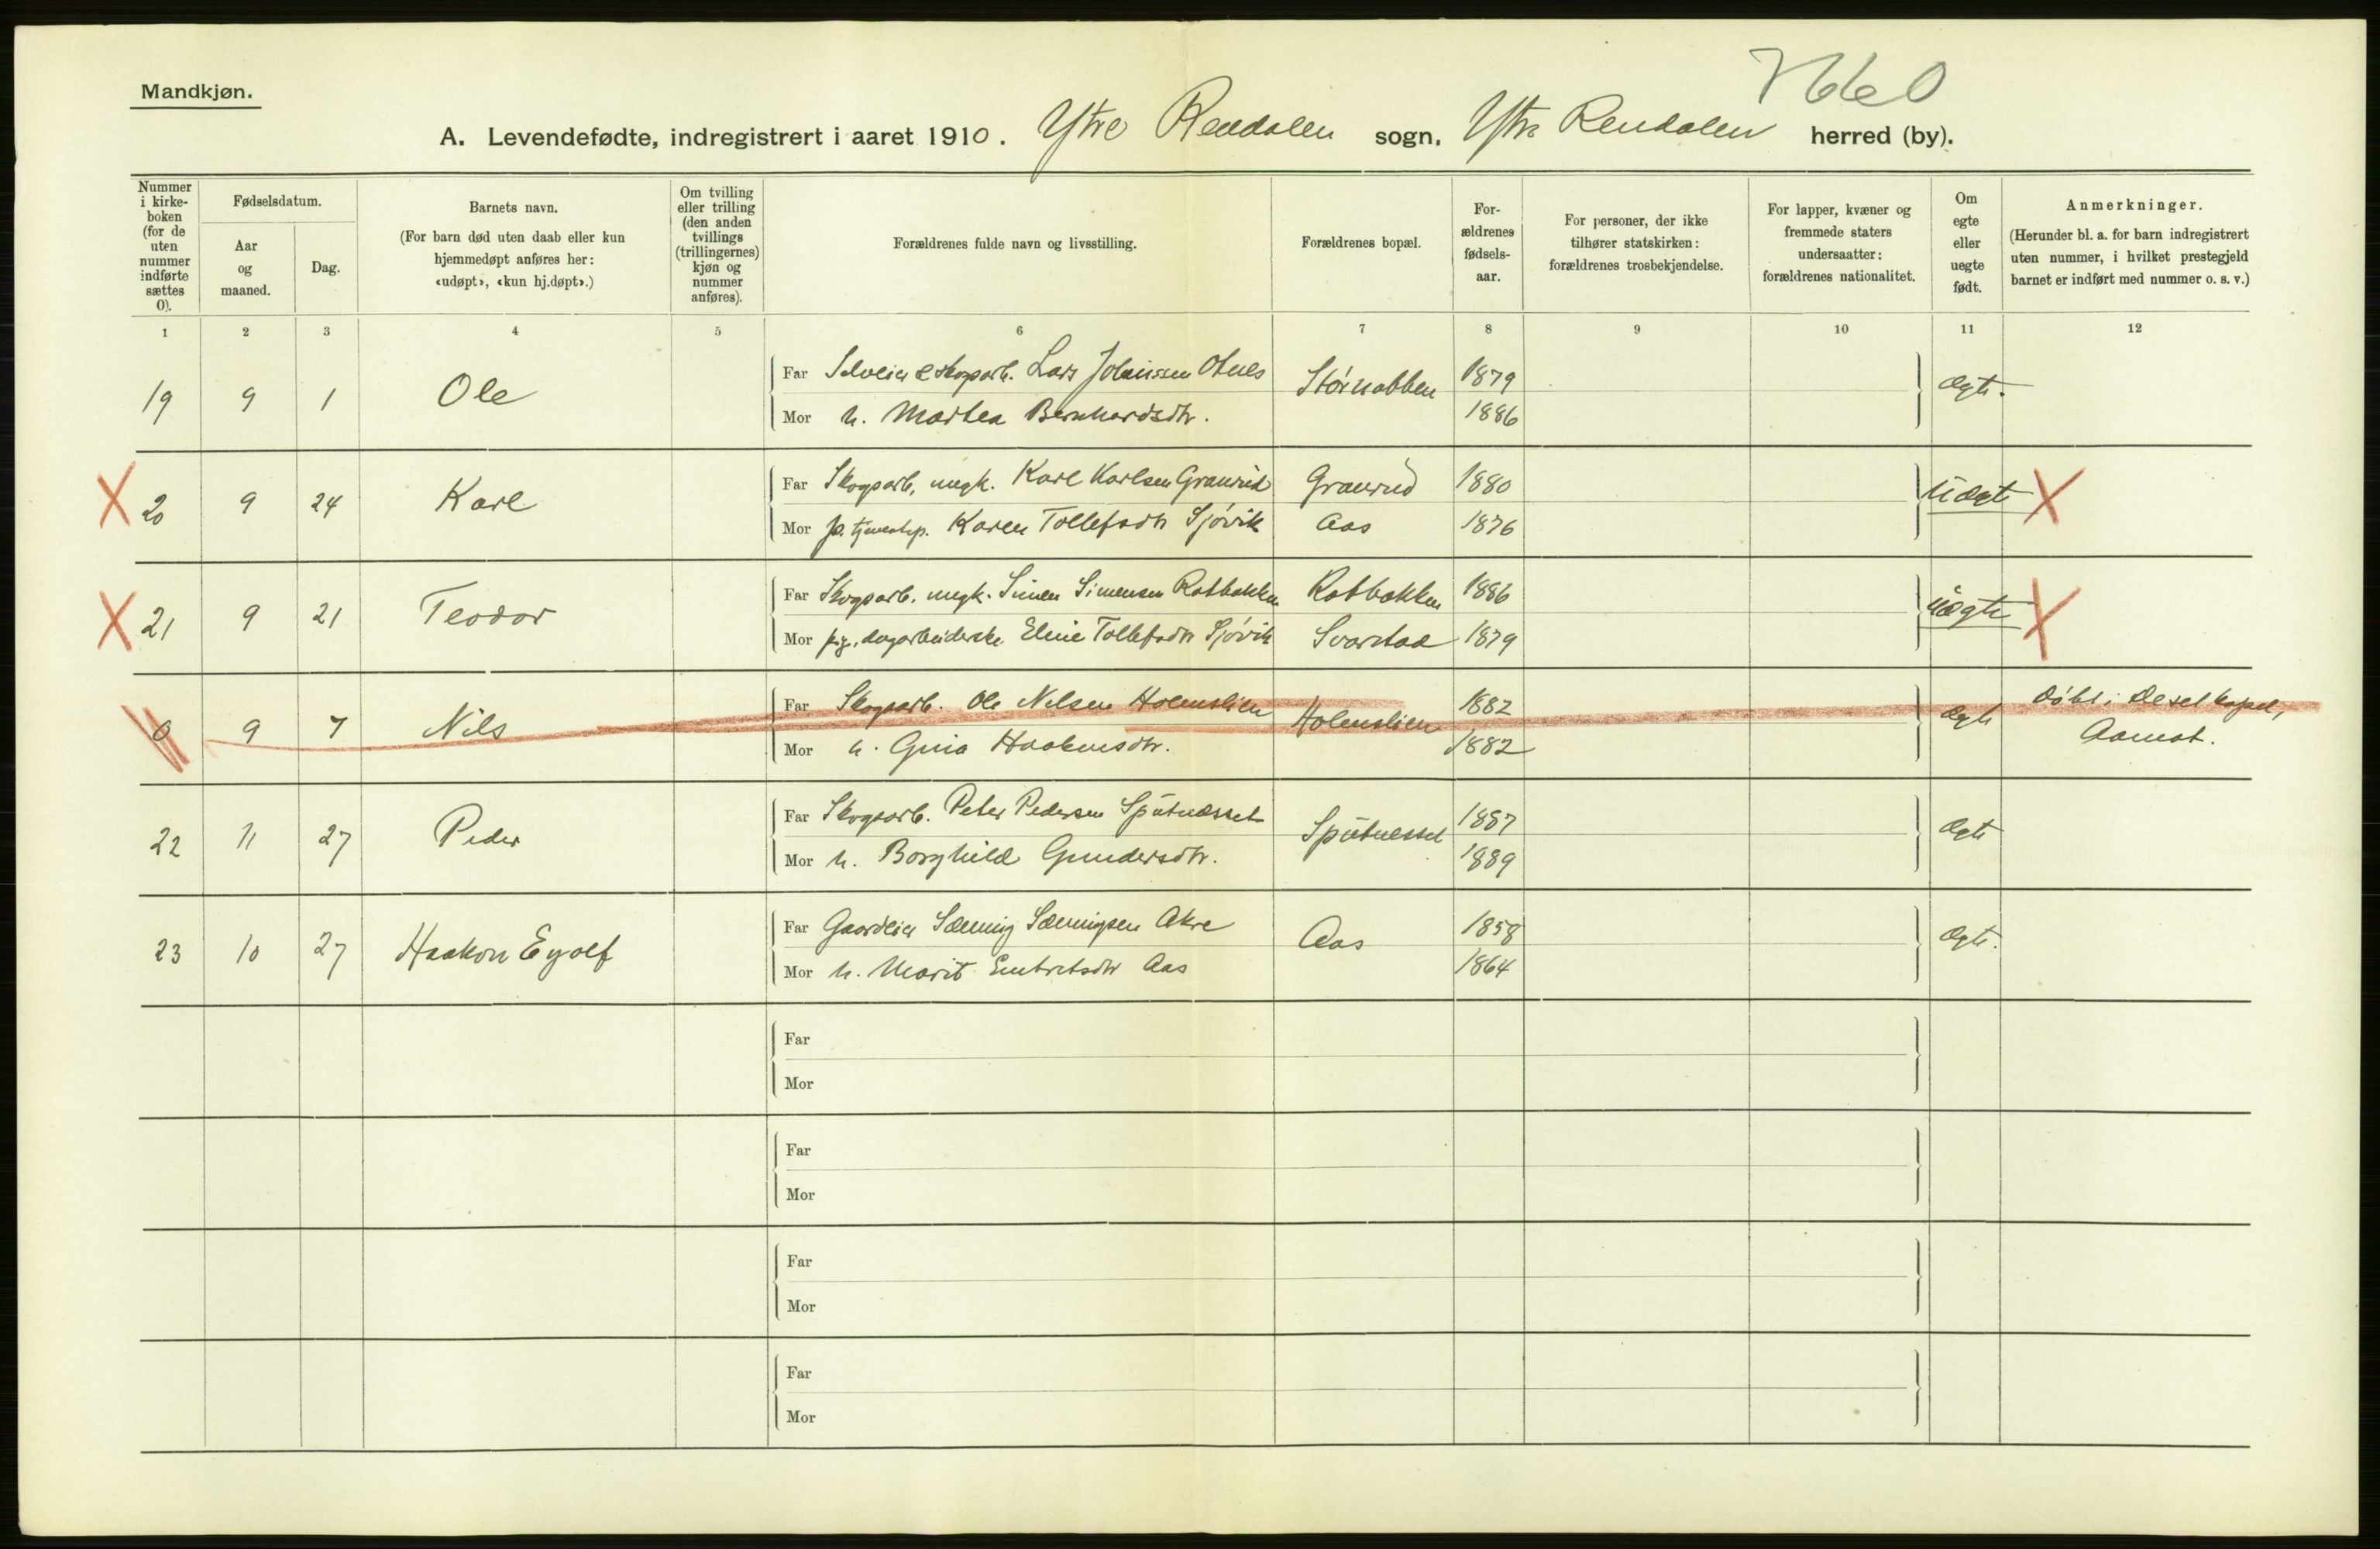 Mandkjøn.
A. Levendefødte, indregistrert i aaret 1910. Ytre Rendalen sogn, Ytre Rendalen herred (by).
Nummer i kirke-boken (for de uten nummer indførte sættes 0).
Fødselsdatum.
Aar og maaned.
Dag.
Barnets navn.
(For barn død uten daab eller kun hjemmedøpt anføres her: «udøpt», «kun hj.døpt».)
Om tvilling eller trilling (den anden tvillings (trillingernes) kjøn og nummer anføres).
Forældrenes fulde navn og livsstilling.
Forældrenes bopæl.
For-ældrenes fødsels-aar.
For personer, der ikke tilhører statskirken: forældrenes trosbekjendelse.
For lapper, kvæner og fremmede staters undersaatter: forældrenes nationalitet.
Om egte eller uegte født.
Anmerkninger.
(Herunder bl. a. for barn indregistrert uten nummer, i hvilket prestegjeld barnet er indført med nummer o. s. v.)
1 2 3 4 5 6 7 8 9 10 11 12
19 9 1 Ole Far Selveier & skogarb. Lars Johnissen Otnes Störnabben 1879 ægte.
Mor h. Marthea Bernhardsdtr. 1886
X 20 9 24 Karl Far Skogsarb, ungk. Karl Karlsen Granrud Granrud 1880 Uægte X
Mor p. tjenestep. Karen Tollefsdtr Sjövik Aas 1876
X 21 9 21 Teodor Far Skogsarb. ungk. Simen Simensen Rotbakken Rotbakken 1886 uægte X
Mor pig. dagarbeiderske Eline Tollefsdtr Sjövik Svarstad 1879
0 9 7 Nils Far Skogsarb. Ole Nilsen Holmslien Holmslien 1882 ægte Döbt i Deset kapel,
Mor h. Gina Haakensdtr. 1882 Aamot.
22 11 27 Peder Far Skogsarb. Peter Pedersen Sputnesset Sputnesset 1887 ægte
Mor h. Borghild Gundersdtr. 1889
23 10 27 Haakon Eyolf Far Gaardeier Sæming Sæmingsen Akre Aas 1858 ægte.
Mor h. Marit Embretsdtr Aas 1864
Far
Mor
Far
Mor
Far
Mor
Far
Mor